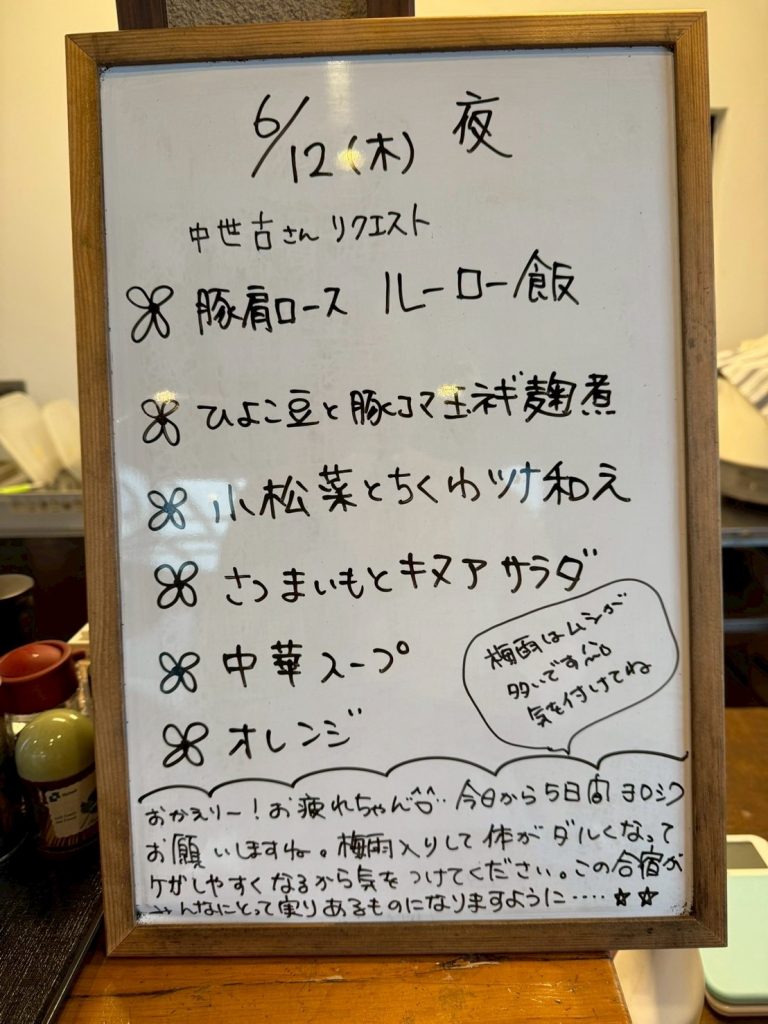 6/12(木) 夜
中世古さんリクエスト
豚肩ロース ルーロー飯
ひよこ豆と豚コマ玉ネギ麹煮
小松菜とちくわツナ和え
さつまいもとキヌアサラダ
中華スープ
オレンジ
梅雨はムシが
多いです
気を付けてね
おかえりー!お疲れちゃん 今日から5日間ヨロシク
お願いしますね。梅雨入りして体がダルくなって
ケガしやすくなるから気をつけてください。この合宿が
みんなにとって実りあるものになりますように……☆☆